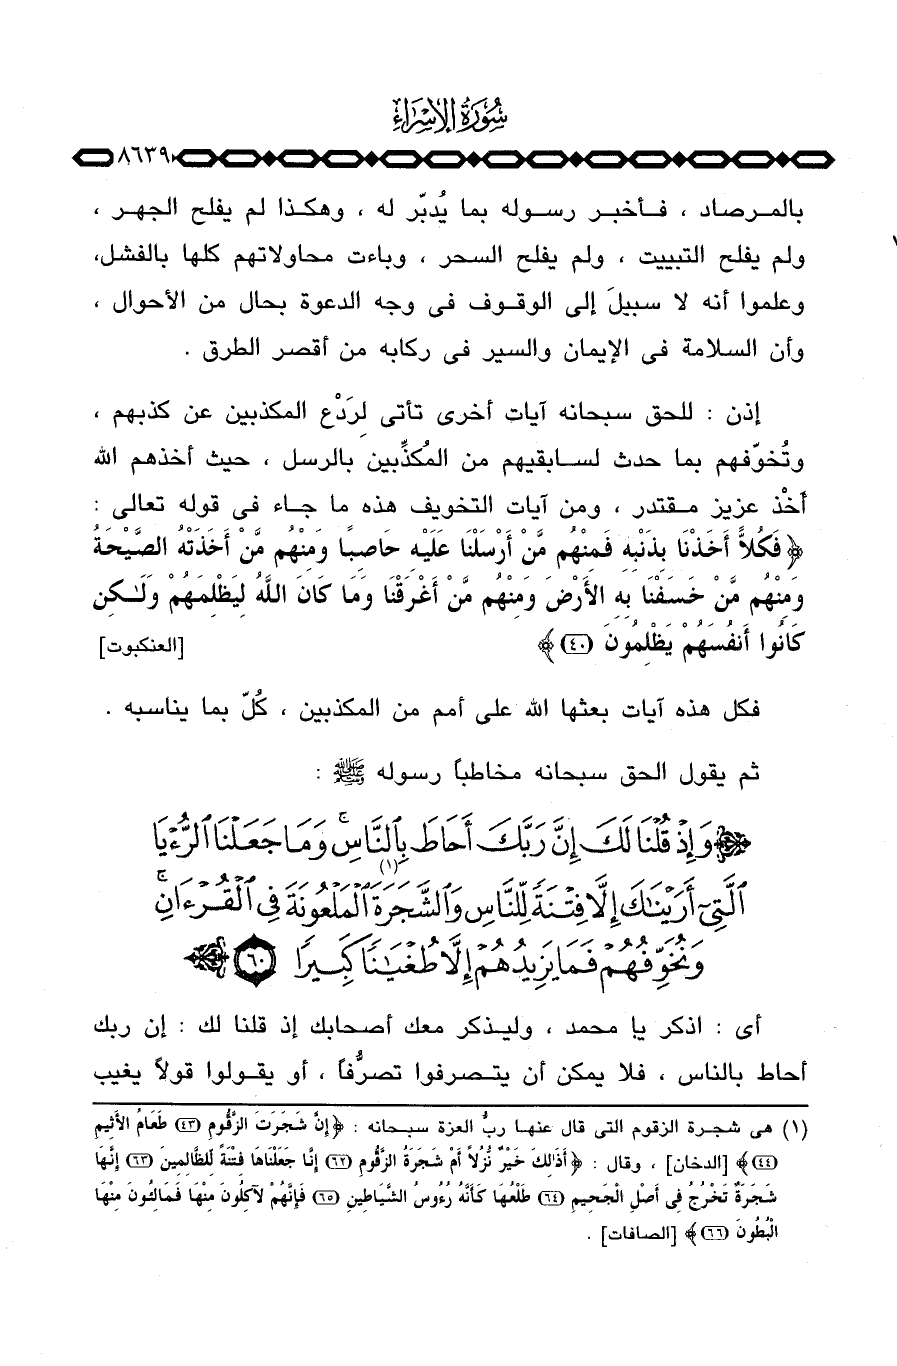 سُورَةُ الإِسْرَاءِ
٨٦٣٩
بالمرصاد ، فأخبر رسوله بما يُدبّر له ، وهكذا لم يفلح الجهر ،
ولم يفلح التبييت ، ولم يفلح السحر ، وباءت محاولاتهم كلها بالفشل،
وعلموا أنه لا سبيلَ إلى الوقوف فى وجه الدعوة بحال من الأحوال ،
وأن السلامة فى الإيمان والسير فى ركابه من أقصر الطرق .
إذن : للحق سبحانه آيات أخرى تأتى لرَدْعِ المكذبين عن كذبهم ،
وتُخوّفهم بما حدث لسابقيهم من المُكذِّبين بالرسل ، حيث أخذهم الله
أَخْذ عزيز مقتدر ، ومن آيات التخويف هذه ما جاء فى قوله تعالى :
﴿ فَكُلاًّ أَخَذْنَا بِذَنْبِهِ فَمِنْهُم مَّنْ أَرْسَلْنَا عَلَيْهِ حَاصِبًا وَمِنْهُم مَّنْ أَخَذَتْهُ الصَّيْحَةُ
وَمِنْهُم مَّنْ خَسَفْنَا بِهِ الأَرْضَ وَمِنْهُم مَّنْ أَغْرَقْنَا وَمَا كَانَ اللَّهُ لِيَظْلِمَهُمْ وَلَـٰكِن
كَانُوا أَنفُسَهُمْ يَظْلِمُونَ (٤٠) ﴾ [العنكبوت]
فكل هذه آيات بعثها الله على أمم من المكذبين ، كُلّ بما يناسبه .
ثم يقول الحق سبحانه مخاطباً رسوله ﷺ :
﴿ وَإِذْ قُلْنَا لَكَ إِنَّ رَبَّكَ أَحَاطَ بِٱلنَّاسِ ۚ وَمَا جَعَلْنَا ٱلرُّءْيَا
ٱلَّتِىٓ أَرَيْنَٰكَ إِلَّا فِتْنَةً لِّلنَّاسِ وَٱلشَّجَرَةَ(١) ٱلْمَلْعُونَةَ فِى ٱلْقُرْءَانِ ۚ
وَنُخَوِّفُهُمْ فَمَا يَزِيدُهُمْ إِلَّا طُغْيَٰنًا كَبِيرًا ٦٠ ﴾
أى : اذكر يا محمد ، وليذكر معك أصحابك إذ قلنا لك : إن ربك
أحاط بالناس ، فلا يمكن أن يتصرفوا تصرُّفاً ، أو يقولوا قولاً يغيب
(١) هى شجرة الزقوم التى قال عنها ربُّ العزة سبحانه : ﴿ إِنَّ شَجَرَتَ الزَّقُّومِ (٤٣) طَعَامُ الأَثِيمِ
(٤٤) ﴾ [الدخان] ، وقال : ﴿ أَذَٰلِكَ خَيْرٌ نُّزُلاً أَمْ شَجَرَةُ الزَّقُّومِ (٦٢) إِنَّا جَعَلْنَاهَا فِتْنَةً لِّلظَّالِمِينَ (٦٣) إِنَّهَا
شَجَرَةٌ تَخْرُجُ فِى أَصْلِ الْجَحِيمِ (٦٤) طَلْعُهَا كَأَنَّهُ رُءُوسُ الشَّيَاطِينِ (٦٥) فَإِنَّهُمْ لآكِلُونَ مِنْهَا فَمَالِئُونَ مِنْهَا
الْبُطُونَ (٦٦) ﴾ [الصافات] .